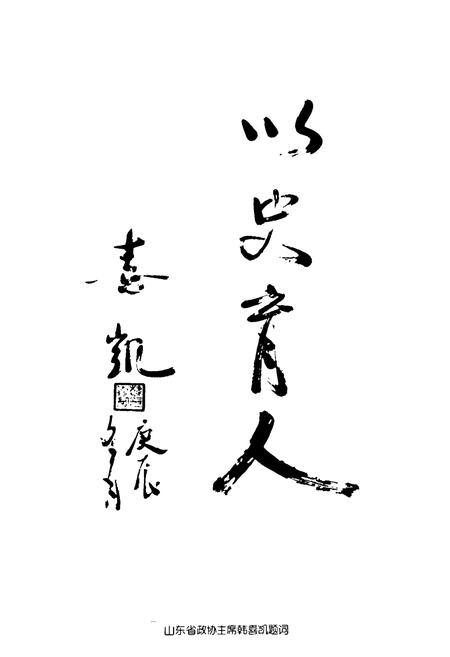 以史育人
喜凯
庚辰
山东省政协主席韩喜凯题词